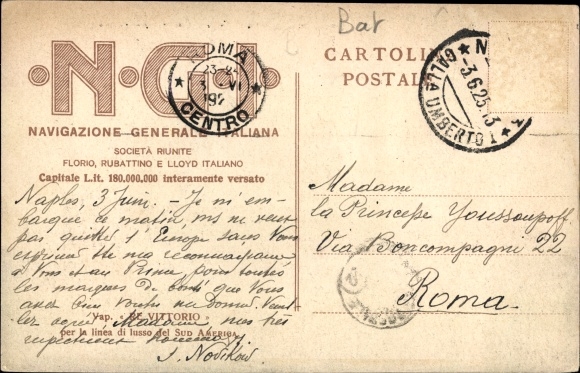 Bat
N·G·I·
CARTOLINA
POSTALE
ROMA
CENTRO
3.6.25.13
GALLA UMBERTO I
NAVIGAZIONE GENERALE ITALIANA
SOCIETÀ RIUNITE
FLORIO, RUBATTINO E LLOYD ITALIANO
Capitale L.it. 180.000.000 interamente versato
Naples, 3 Juin. - Je m'em-
barque ce matin, mais ne veux
pas quitter l'Europe sans Vous
exprimer tte ma reconnaissance
à Vous et au Prince, pour toutes
les marques de bonté que Vous
avez bien voulu me donner. Veuil-
lez agréer Madame, mes très
Vap. « RE VITTORIO »
per la linea di lusso del SUD AMERICA
Madame
la Princesse Youssoupoff
Via Boncompagni 22
Roma.